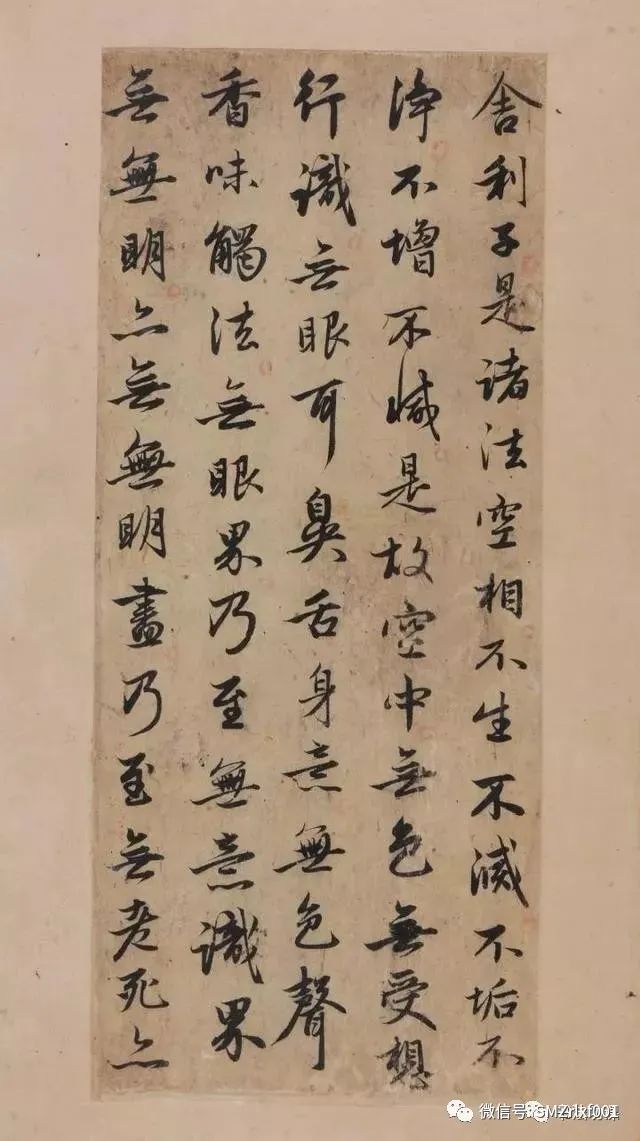 舍利子是诸法空相不生不滅不垢不
淨不增不減是故空中無色無受想
行識無眼耳鼻舌身意無色聲
香味觸法無眼界乃至無意識界
無無明亦無無明盡乃至無老死亦
微信号